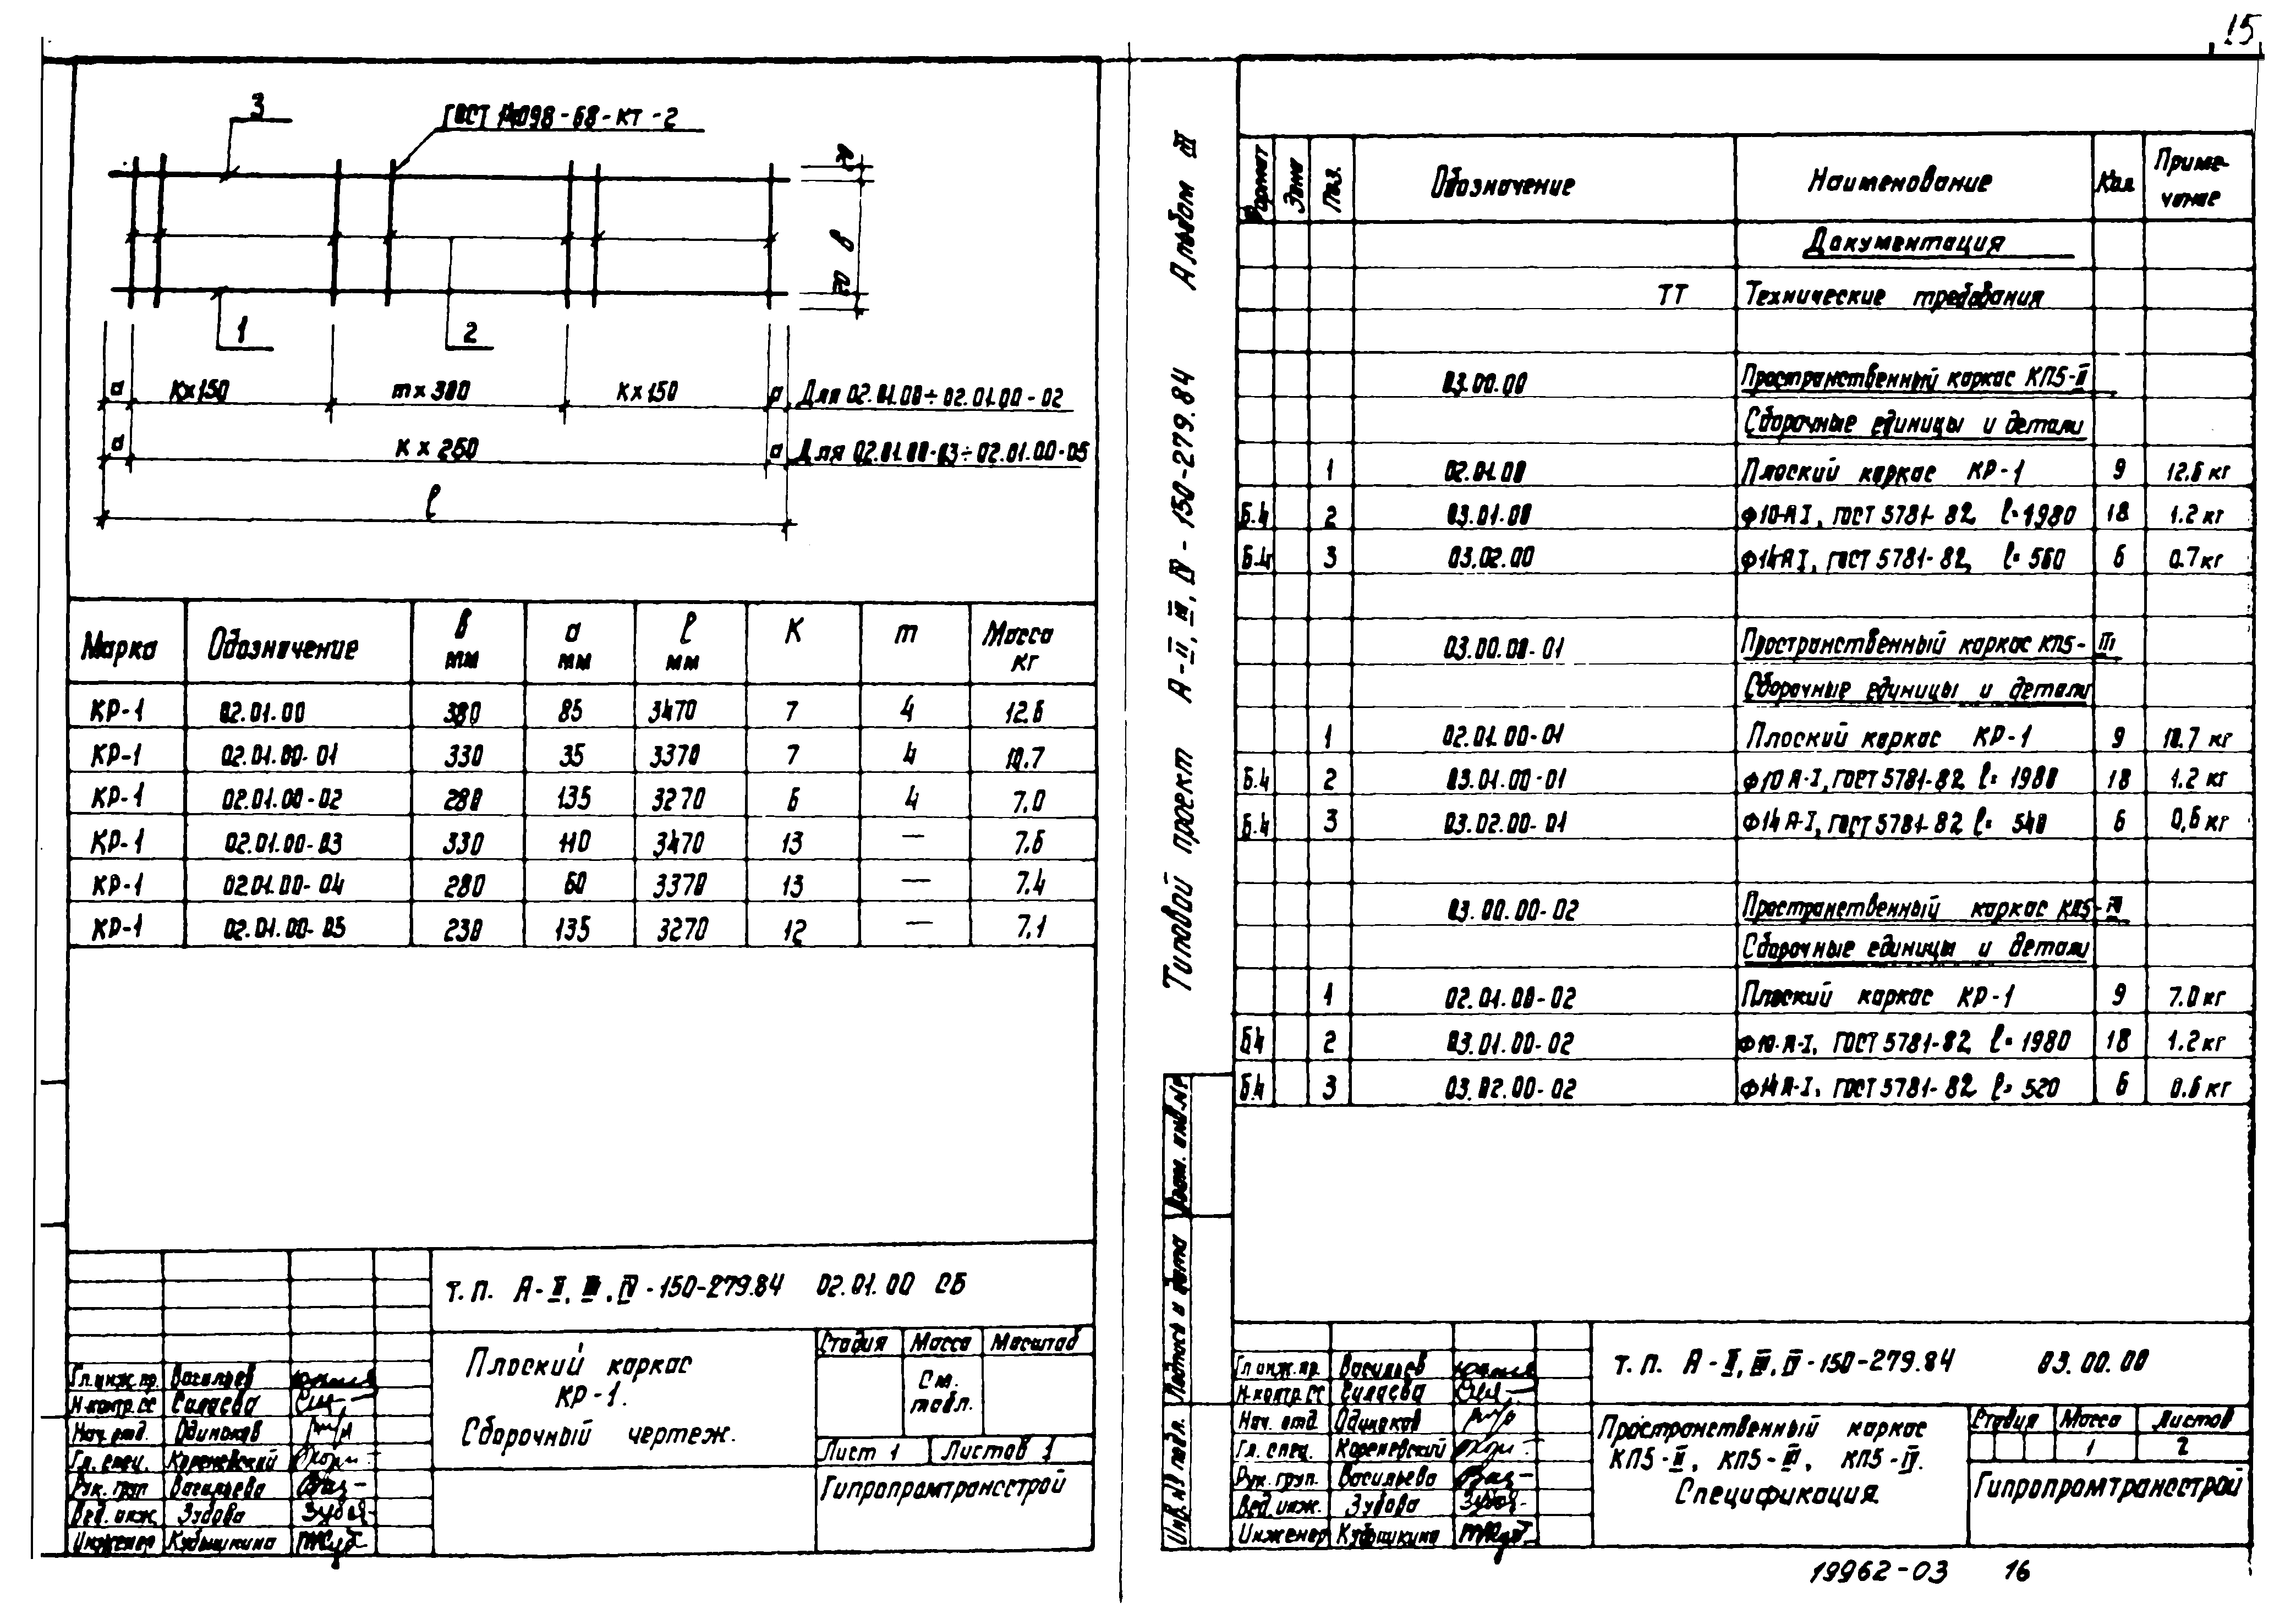 15
3
ГОСТ 14098-68-КТ-2
20
в
20
1
2
а
К×150
m×300
К×150
а
Для 02.01.00÷02.01.00-02
а
К × 250
а
Для 02.01.00-03÷02.01.00-05
ℓ
Марка Обозначение в мм а мм ℓ мм К m Масса кг
КР-1 02.01.00 380 85 3470 7 4 12.6
КР-1 02.01.00-01 330 35 3370 7 4 10.7
КР-1 02.01.00-02 280 135 3270 6 4 7.0
КР-1 02.01.00-03 330 110 3470 13 — 7.6
КР-1 02.01.00-04 280 60 3370 13 — 7.4
КР-1 02.01.00-05 230 135 3270 12 — 7.1
т.п. А-II, III, IV-150-279.84 02.01.00 СБ
Плоский каркас
КР-1.
Сборочный чертеж.
Стадия Масса Масштаб
См.
табл.
Лист 1 Листов 1
Гипропромтрансстрой
Гл.инж.пр. Васильев
Н.контр.СС Силаева
Нач. отд. Одиноков
Гл. спец. Кореневский
Рук. груп Васильева
Вед. инж. Зубова
Инженер Кубышкина
Типовой проект А-II, III, IV-150-279.84 Альбом III
Взам. инв.№
Подпись и дата
Инв.№ подл.
Формат Зона Поз. Обозначение Наименование Кол Приме-
чание
Документация
ТТ Технические требования
03.00.00 Пространственный каркас КП5-II
Сборочные единицы и детали
1 02.01.00 Плоский каркас КР-1 9 12.6 кг
Б.ч 2 03.01.00 Ф10-АI, ГОСТ 5781-82 ℓ=1980 18 1.2 кг
Б.ч 3 03.02.00 Ф14АI, ГОСТ 5781-82, ℓ= 560 6 0.7 кг
03.00.00-01 Пространственный каркас КП5-III
Сборочные единицы и детали
1 02.01.00-01 Плоский каркас КР-1 9 10.7 кг
Б.ч 2 03.01.00-01 Ф10 А-I, ГОСТ 5781-82 ℓ= 1980 18 1.2 кг
Б.ч 3 03.02.00-01 Ф14 А-I, ГОСТ 5781-82 ℓ= 540 6 0,6 кг
03.00.00-02 Пространственный каркас КП5-IV
Сборочные единицы и детали
1 02.01.00-02 Плоский каркас КР-1 9 7.0 кг
Б.ч 2 03.01.00-02 Ф10-А-I, ГОСТ 5781-82 ℓ=1980 18 1.2 кг
Б.ч 3 03.02.00-02 Ф14 А-I, ГОСТ 5781-82 ℓ= 520 6 0.6 кг
т.п. А-II, III, IV-150-279.84 03.00.00
Пространственный каркас
КП5-II, КП5-III, КП5-IV.
Спецификация
Стадия Масса Листов
1 2
Гипропромтрансстрой
Гл.инж.пр. Васильев
Н.контр.СС Силаева
Нач. отд. Одиноков
Гл. спец. Кореневский
Рук. груп. Васильева
Вед. инж. Зубова
Инженер Кубышкина
19962-03 16